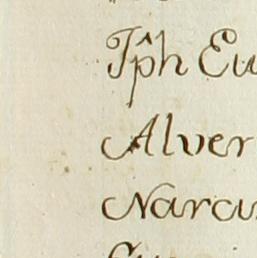 Jp̂h Eu
Alver
Narcu